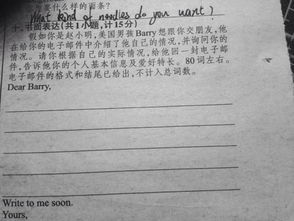 要什么样的面条?
What kind of noodles do you want?
书面表达(共1小题,计15分)
假如你是赵小明,美国男孩Barry想跟你交朋友,他
在给你的电子邮件中介绍了他自己的情况,并询问你的
情况。请你根据自己的实际情况,给他回一封电子邮
件,告诉他你的个人基本信息及爱好特长。80词左右。
电子邮件的格式和结尾已给出,不计入总词数。
Dear Barry,
Write to me soon.
Yours,